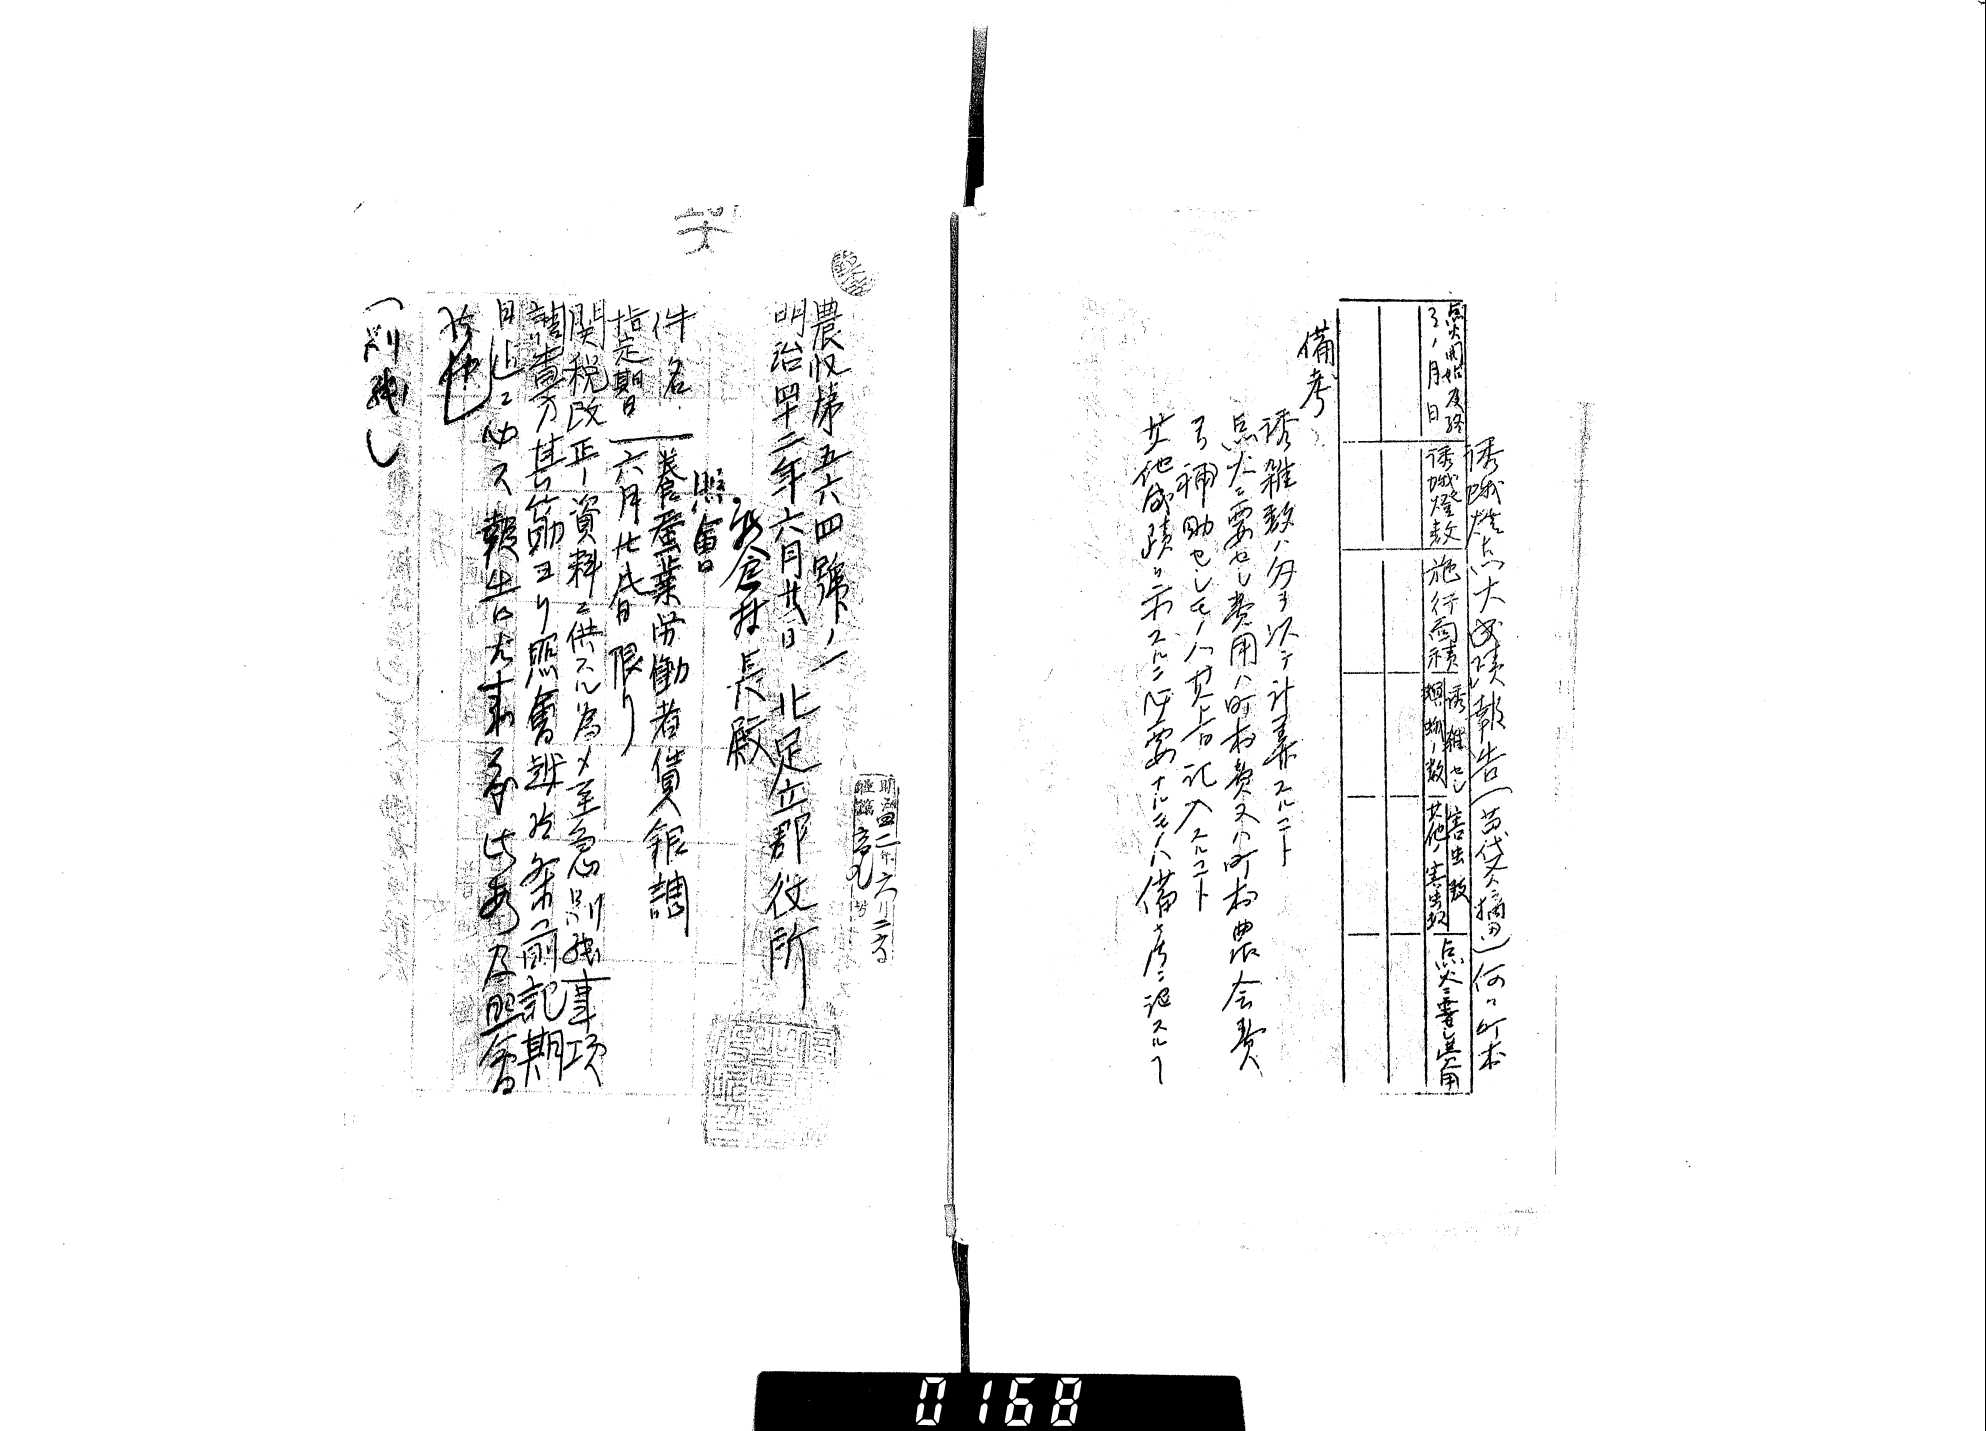 誘蛾燈点火成蹟報告(苗代ニ摘用)何々町村
点火開始及終了ノ月日
誘蛾燈数
施行面積
誘雑セシ螟蛾ノ数
其他ノ害虫数
点火ニ要セシ費用
備考
誘雑数ハ匁ヲ以テ計算スルコト
点火ニ要セシ費用ハ町村費又ハ町村農会費
ヨリ補助セシモノハ其旨記入スルコト
其他成蹟ヲ示スルニ必要ナルモノハ備考ニ記スルコト
農収第五六四號ノ一
明治四十二年六月廿二日 北足立郡役所
新倉村長殿
照會
件名 養蚕業労働者賃銀調
指定期日 六月廿八日限り
関税改正ノ資料ニ供スル為メ至急別紙事項
調書方其筋ヨリ照會越候条前記期
日迄ニ必ス報告相成度此段及照會
候也
(別紙)
0168